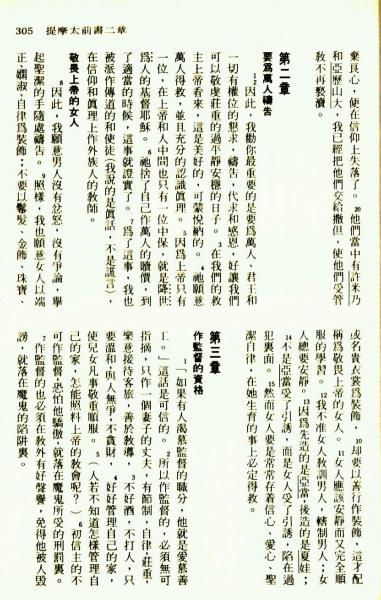 305　提摩太前書二章
棄良心，便在信仰上失落了。20他們當中有許米乃
和亞歷山大，我已經把他們交給撒但，使他們受管
教不再褻瀆。
第二章
要爲萬人禱告
1 2因此，我勸你最重要的是要爲萬人、君王和
一切有權位的懇求，禱告，代求和感恩，好讓我們
可以敬虔莊重的過平靜安穩的日子。3在我們的救
主上帝看來，這是美好的，可蒙悅納的。4祂願意
萬人得救，並且充分的認識眞理。5因爲上帝只有
一位，在上帝和人中間也只有一位中保，就是降世
爲人的基督耶穌。6祂捨了自己作萬人的贖價，到
了適當的時候，這事就證實了。7爲了這事，我也
被派作傳道的和使徒(我說的是眞話，不是謊言)，
在信仰和眞理上作外族人的敎師。
敬畏上帝的女人
8因此，我願意男人沒有忿怒，沒有爭論，舉
起聖潔的手隨處禱告。9照樣，我也願意女人以端
正、嫻淑、自律爲裝飾；不要以鬈髮、金飾、珠寶、
或名貴衣裳爲裝飾，10却要以善行作裝飾，這才配
稱爲敬畏上帝的女人。11女人應該安靜而又完全順
服的學習。12我不准女人敎訓男人，轄制男人；女
人總要安靜。13因爲先造的是亞當，後造的是夏娃；
14不是亞當受了引誘，而是女人受了引誘，陷在過
犯裏面。15然而女人要是常常存着信心、愛心，聖
潔自律，在她生育的事上必定得救。
第三章
作監督的資格
1「如果有人渴慕監督的職分，他就是愛慕善
工。」這話是可信的。2所以作監督的，必須無可
指摘，只作一個妻子的丈夫，有節制，自律，莊重，
樂意接待客旅，善於敎導，3不好酒，不打人，只
要溫和；與人無爭，不貪財，4好好管理自己的家，
使兒女凡事敬重順服。5(人若不知道怎樣管理自
己的家，怎能照料上帝的敎會呢？)6初信主的不
可作監督，恐怕他驕傲，就落在魔鬼所受的刑罰裏。
7作監督的也必須在敎外有好聲譽，免得他被人毀
謗，就落在魔鬼的陷阱裏。